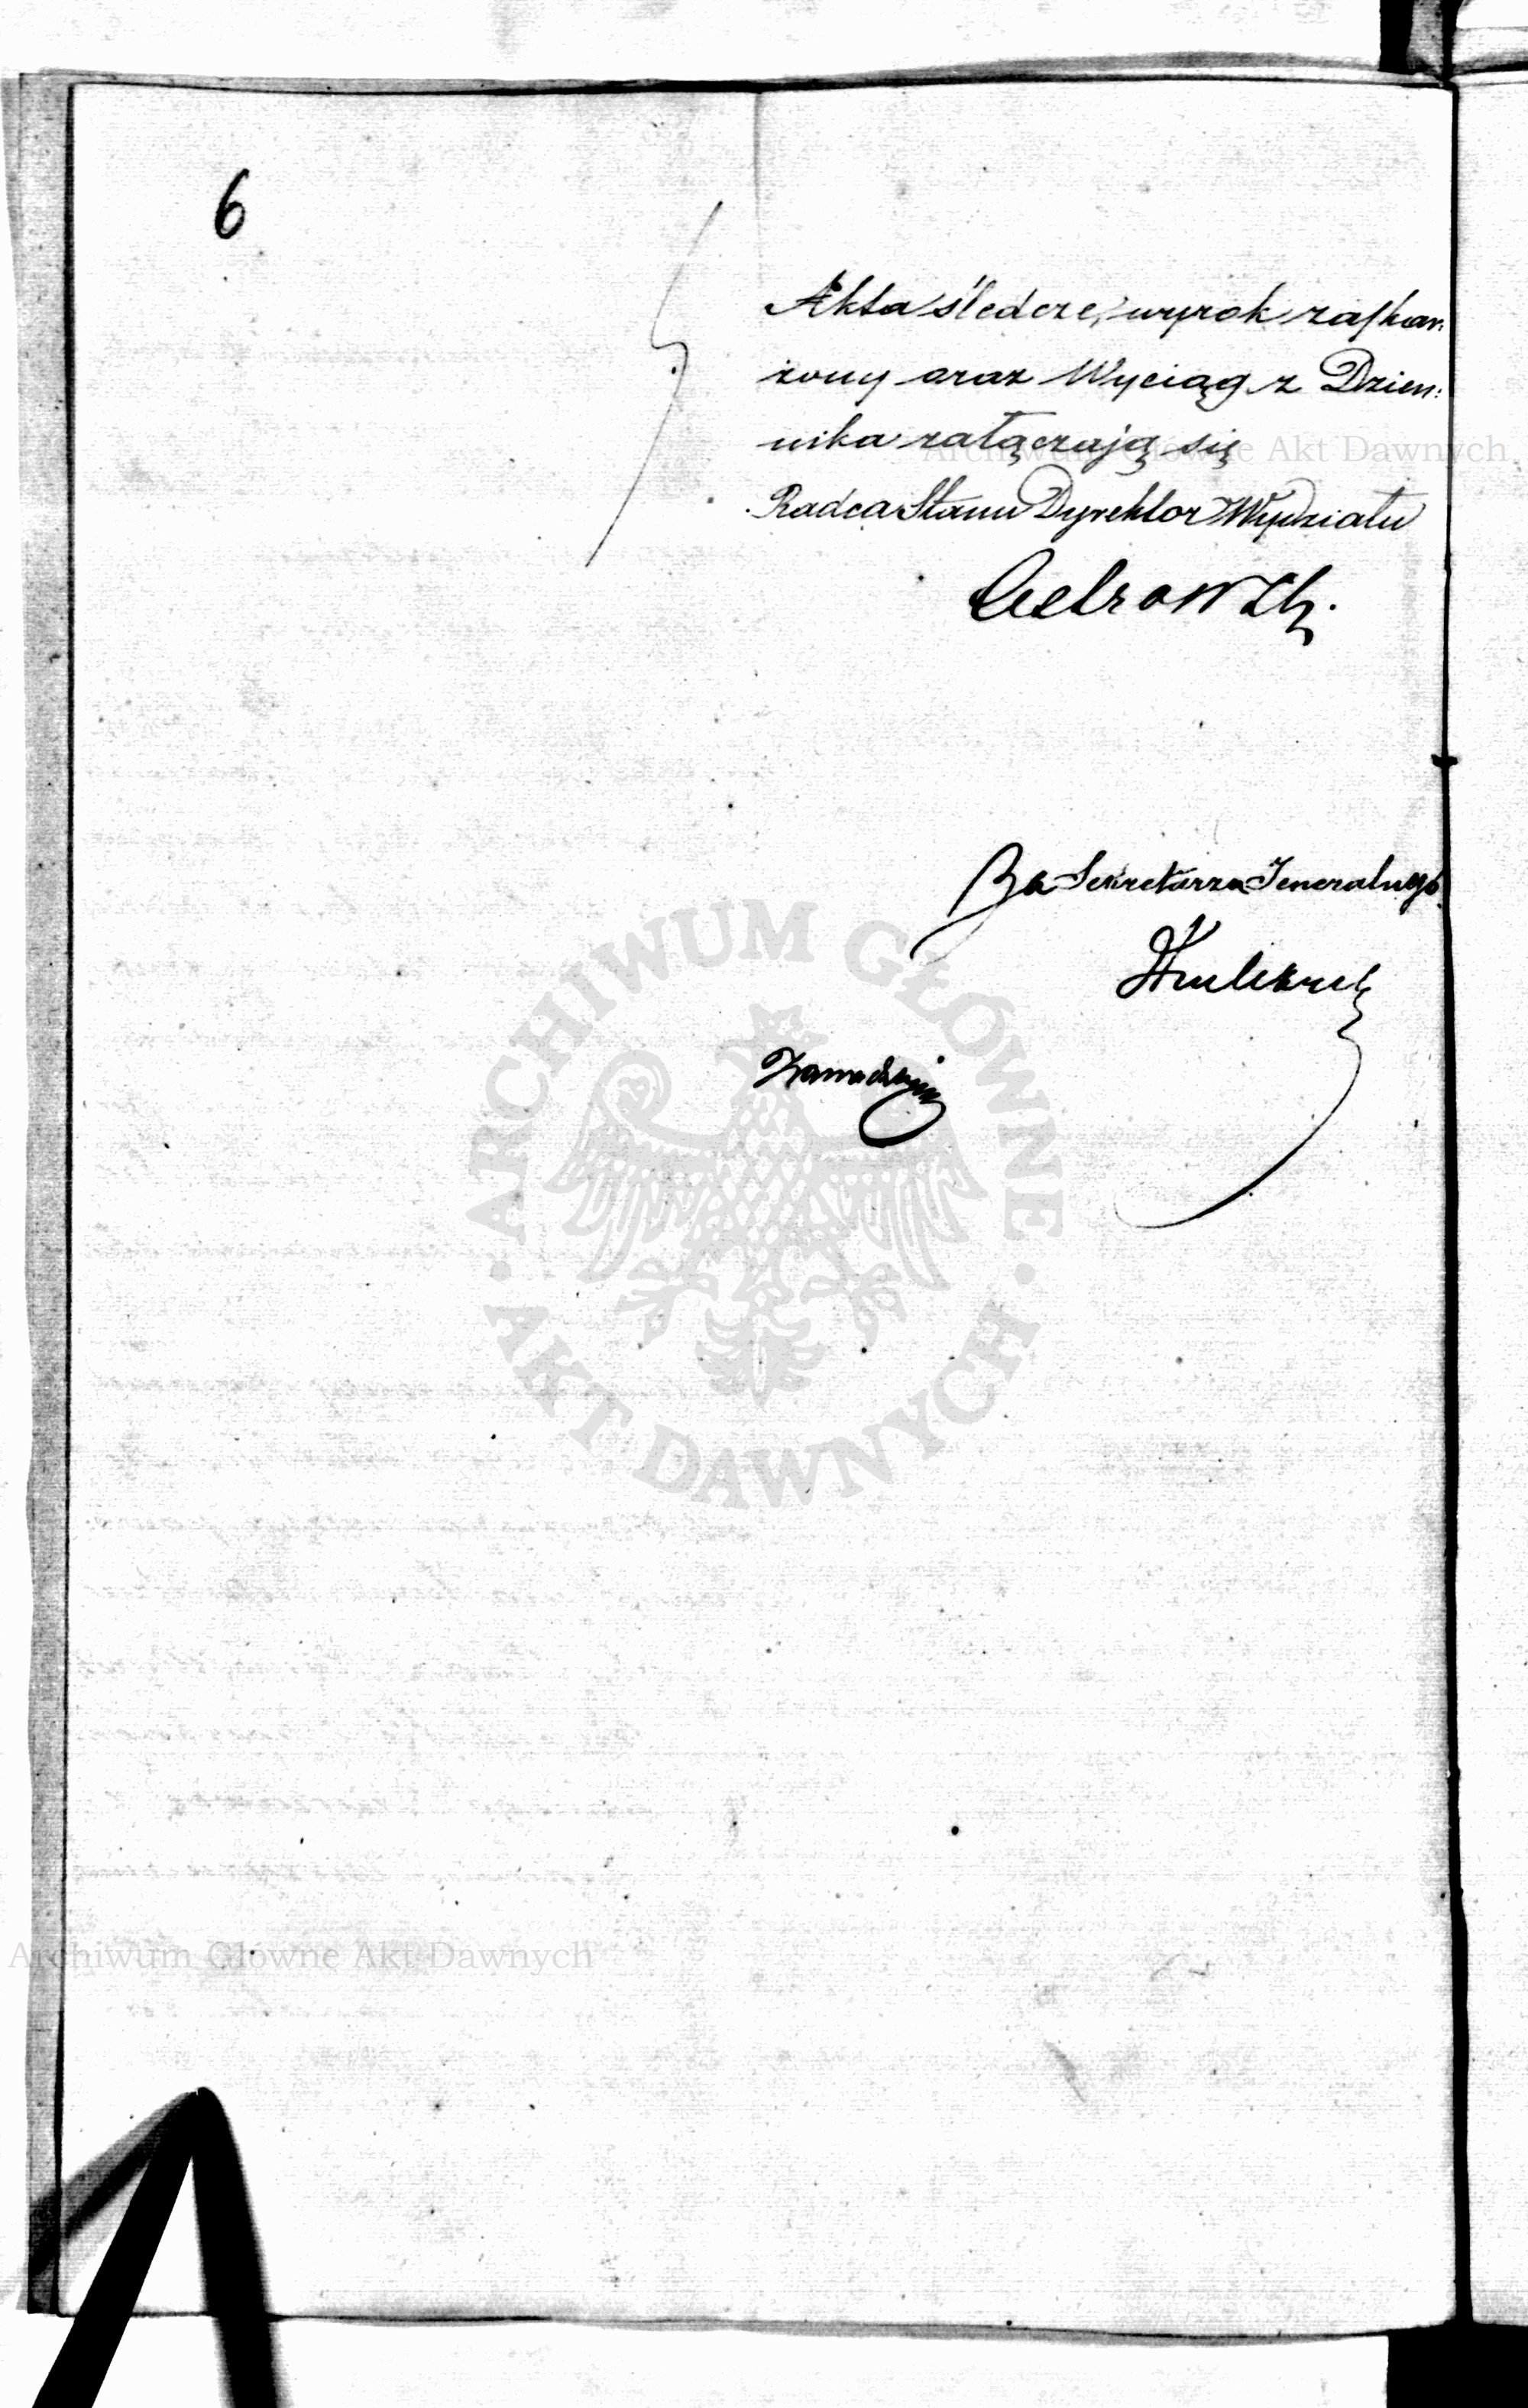 6
Akta śledcze, wyrok zaskar:
żony oraz Wyciąg z Dzien:
nika załączają się
Radca Stanu Dyrektor Wydziału
Za Sekretarza Jeneralnego
Archiwum Główne Akt Dawnych
ARCHIWUM GŁÓWNE
· AKT DAWNYCH ·
Archiwum Główne Akt Dawnych